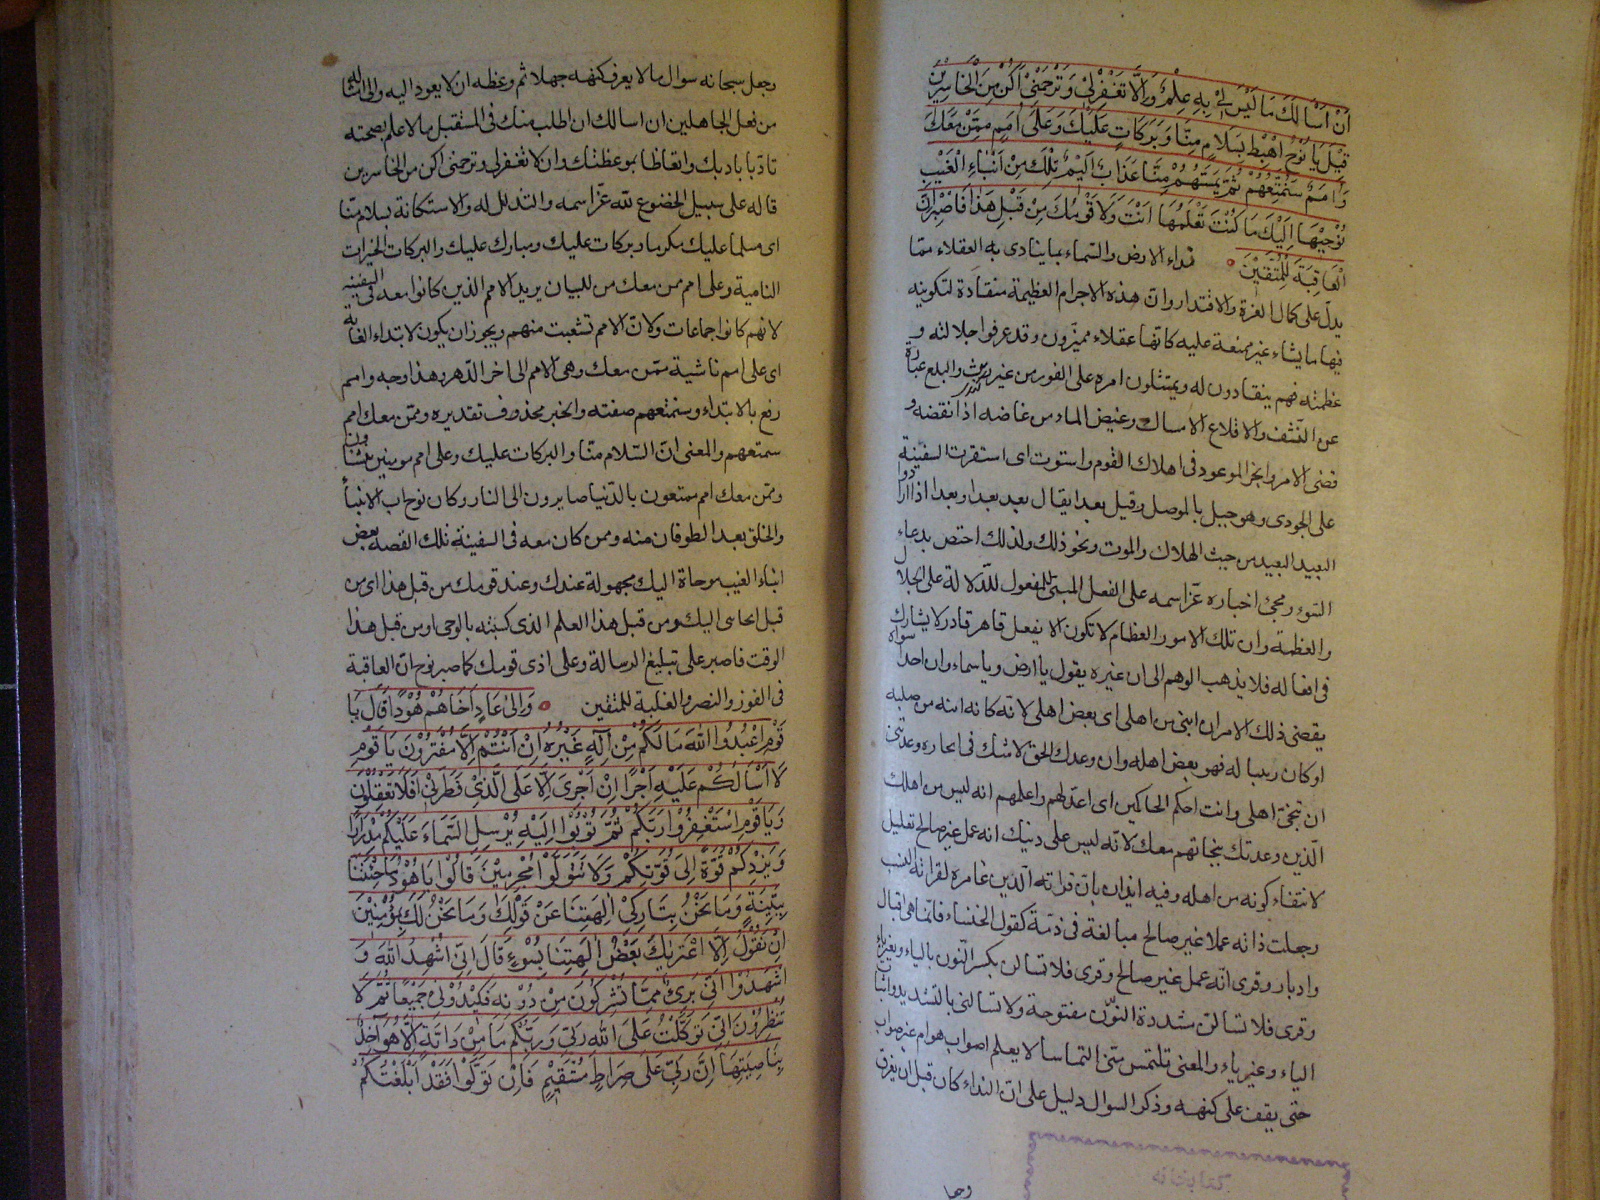 أَنْ أَسْأَلَكَ مَا لَيْسَ لِي بِهِ عِلْمٌ وَإِلَّا تَغْفِرْ لِي وَتَرْحَمْنِي أَكُنْ مِنَ الْخَاسِرِينَ
قِيلَ يَا نُوحُ اهْبِطْ بِسَلَامٍ مِنَّا وَبَرَكَاتٍ عَلَيْكَ وَعَلَى أُمَمٍ مِمَّنْ مَعَكَ
وَأُمَمٌ سَنُمَتِّعُهُمْ ثُمَّ يَمَسُّهُمْ مِنَّا عَذَابٌ أَلِيمٌ تِلْكَ مِنْ أَنْبَاءِ الْغَيْبِ
نُوحِيهَا إِلَيْكَ مَا كُنْتَ تَعْلَمُهَا أَنْتَ وَلَا قَوْمُكَ مِنْ قَبْلِ هَذَا فَاصْبِرْ إِنَّ
الْعَاقِبَةَ لِلْمُتَّقِينَ نداء الارض والسماء بما ينادى به العقلاء مما
يدل على كمال العزة والاقتدار وان هذه الاجرام العظيمة منقادة لتكوينه
فيها ما يشاء غير ممتنعة عليه كانها عقلاء مميزون وقد عرفوا جلالته و
عظمته فهم ينقادون له ويمتثلون امره على الفور من غير ريث والبلع عبارة
عن النشف والاقلاع الامساك وغيض الماء من غاضه اذا نقصه و
قضى الامر وانجز الموعود فى اهلاك القوم واستوت اى استقرت السفينة
على الجودى وهو جبل بالموصل وقيل بعدا يقال بعد بعدا وبعدا اذا ارادوا
البعد البعيد من حيث الهلاك والموت ونحو ذلك ولذلك اختص بدعاء
السوء ومجئ اخباره عز اسمه على الفعل المبنى للمفعول للدلالة على الجلال
والعظمة وان تلك الامور العظام لا تكون الا بفعل قاهر قادر لا يشارك
فى افعاله فلا يذهب الوهم الى ان غيره يقول يا ارض ويا سماء وان احدا سواه
يقضى ذلك الامر ان ابنى من اهلى اى بعض اهلى لانه كان ابنه من صلبه
او كان ربيبا له فهو بعض اهله وان وعدك الحق لا شك فى انجازه وعدتنى
ان تنجى اهلى وانت احكم الحاكمين اى اعدلهم واعلمهم انه ليس من اهلك
الذين وعدتك بنجاتهم معك لانه ليس على دينك انه عمل غير صالح تعليل
لانتفاء كونه من اهله وفيه ايذان بان قرابة الدين غامرة لقرابة النسب
وجعلت ذاته عملا غير صالح مبالغة فى ذمه كقول الخنساء فانما هى اقبال
وادبار وقرى انه عمل غير صالح وقرى فلا تسالن بكسر النون بالياء وبغير ياء
وقرى فلا تسالن مشددة النون مفتوحة ولا تسالنى بالتشديد واثبات
الياء وغير ياء والمعنى تلتمس منى التماسا لا يعلم اصواب هو ام غير صواب
حتى يقف على كنهه وذكر السوال دليل على ان النداء كان قبل ان يغرق
كتابخانه
وجعل سبحانه سوال ما لا يعرف كنهه جهلا ثم وعظه ان لا يعود اليه والى امثاله
من فعل الجاهلين ان اسالك ان اطلب منك فى المستقبل ما لا علم بصحته
تادبا بادبك واتعاظا بموعظتك وان لا تغفر لى وترحمنى اكن من الخاسرين
قاله على سبيل الخضوع لله عز اسمه والتذلل له والاستكانة بسلام منا
اى مسلما عليك مكرما وبركات عليك ومبارك عليك والبركات الخيرات
النامية وعلى امم ممن معك من للبيان يريد الامم الذين كانوا معه فى السفينة
لانهم كانوا جماعات ولان الامم تشعبت منهم ويجوز ان يكون لابتداء الغاية
اى على امم ناشية ممن معك وهى الامم الى اخر الدهر وهذا وجه وامم
رفع بالابتداء وسنمتعهم صفته والخبر محذوف تقديره وممن معك امم
سمتعهم والمعنى ان السلام منا والبركات عليك وعلى امم مومنين ينشاون
وممن معك امم ممتعون بالدنيا صايرون الى النار وكان نوح اب الانبياء
والخلق بعد الطوفان منه وممن كان معه فى السفينة تلك القصه بعض
انباء الغيب موحاة اليك مجهولة عندك وعند قومك من قبل هذا اى من
قبل ايحائى اليك ومن قبل هذا العلم الذى كسبته بالوحى او من قبل هذا
الوقت فاصبر على تبليغ الرسالة وعلى اذى قومك كما صبر نوح ان العاقبة
فى الفوز والنصر والغلبة للمتقين وَإِلَى عَادٍ أَخَاهُمْ هُودًا قَالَ يَا
قَوْمِ اعْبُدُوا اللهَ مَا لَكُمْ مِنْ إِلَهٍ غَيْرُهُ إِنْ أَنْتُمْ إِلَّا مُفْتَرُونَ يَا قَوْمِ
لَا أَسْأَلُكُمْ عَلَيْهِ أَجْرًا إِنْ أَجْرِيَ إِلَّا عَلَى الَّذِي فَطَرَنِي أَفَلَا تَعْقِلُونَ
وَيَا قَوْمِ اسْتَغْفِرُوا رَبَّكُمْ ثُمَّ تُوبُوا إِلَيْهِ يُرْسِلِ السَّمَاءَ عَلَيْكُمْ مِدْرَارًا
وَيَزِدْكُمْ قُوَّةً إِلَى قُوَّتِكُمْ وَلَا تَتَوَلَّوْا مُجْرِمِينَ قَالُوا يَا هُودُ مَا جِئْتَنَا
بِبَيِّنَةٍ وَمَا نَحْنُ بِتَارِكِي آلِهَتِنَا عَنْ قَوْلِكَ وَمَا نَحْنُ لَكَ بِمُؤْمِنِينَ
إِنْ نَقُولُ إِلَّا اعْتَرَاكَ بَعْضُ آلِهَتِنَا بِسُوءٍ قَالَ إِنِّي أُشْهِدُ اللهَ وَ
اشْهَدُوا أَنِّي بَرِيءٌ مِمَّا تُشْرِكُونَ مِنْ دُونِهِ فَكِيدُونِي جَمِيعًا ثُمَّ لَا
تُنْظِرُونِ إِنِّي تَوَكَّلْتُ عَلَى اللهِ رَبِّي وَرَبِّكُمْ مَا مِنْ دَابَّةٍ إِلَّا هُوَ آخِذٌ
بِنَاصِيَتِهَا إِنَّ رَبِّي عَلَى صِرَاطٍ مُسْتَقِيمٍ فَإِنْ تَوَلَّوْا فَقَدْ أَبْلَغْتُكُمْ